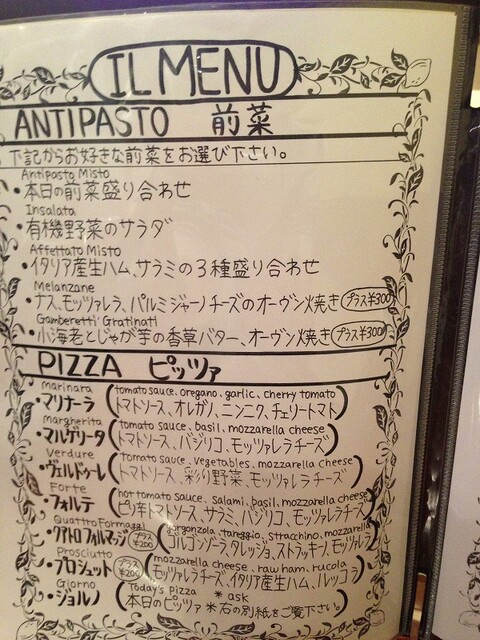 IL MENU
ANTIPASTO 前菜
下記からお好きな前菜をお選び下さい。
Antipasto Misto
・本日の前菜盛り合わせ
Insalata
・有機野菜のサラダ
Affettato Misto
・イタリア産生ハム、サラミの3種盛り合わせ
Melanzane
・ナス、モッツァレラ、パルミジャーノチーズのオーヴン焼き プラス¥300
Gamberetti Gratinati
・小海老とじゃが芋の香草バター、オーヴン焼き プラス¥300
PIZZA ピッツァ
Marinara
tomato sauce, oregano, garlic, cherry tomato
・マリナーラ (トマトソース、オレガノ、ニンニク、チェリートマト)
Margherita
tomato sauce, basil, mozzarella cheese
・マルゲリータ (トマトソース、バジリコ、モッツァレラチーズ)
Verdure
tomato sauce, vegetables, mozzarella cheese
・ヴェルドゥーレ (トマトソース、彩り野菜、モッツァレラチーズ)
Forte
hot tomato sauce, salami, basil, mozzarella cheese
・フォルテ (ピリ辛トマトソース、サラミ、バジリコ、モッツァレラチーズ)
Quattro Formaggi
gorgonzola, tareggio, stracchino, mozzarella
・クアトロフォルマッジ プラス¥200 (ゴルゴンゾーラ、タレッジョ、ストラッキーノ、モッツァレラ)
Prosciutto
mozzarella cheese, raw ham, rucola
・プロシュット プラス¥200 (モッツァレラチーズ、イタリア産生ハム、ルッコラ)
Giorno
Today's pizza * ask
・ジョルノ (本日のピッツァ *右の別紙をご覧下さい。)